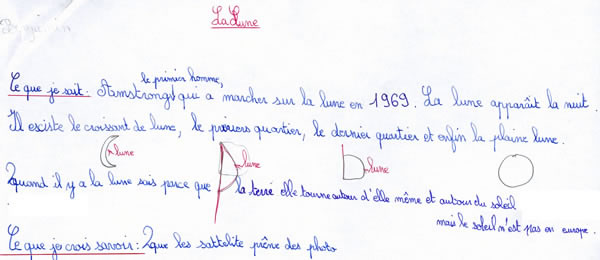 La Lune
le premier homme,
Ce que je sait : Armstrongs qui a marcher sur la lune en 1969. La lune apparaît la nuit.
Il esciste le croissant de lune, le premiers quartier, le dernier quartier et enfin la plaine lune.
lune lune lune
Quand il y a la lune sais parce que la terre elle tourne autour d'elle même et autour du soleil
mais le soleil n'est pas en europe.
Ce que je crois savoir : Que les sattelite prêne des photo